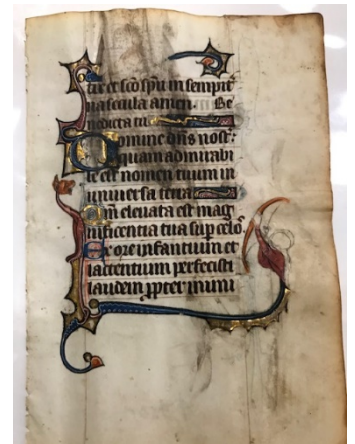 tir et sco spu in sempit
na secula amen. Be
nedicta tu
Domine dns nost
quam admirabi
le est nomen tuum in
universa terra
Qm elevata est mag
nificentia tua sup celos
Ex ore infantium et
lactentium perfecisti
laudem ppter inimi